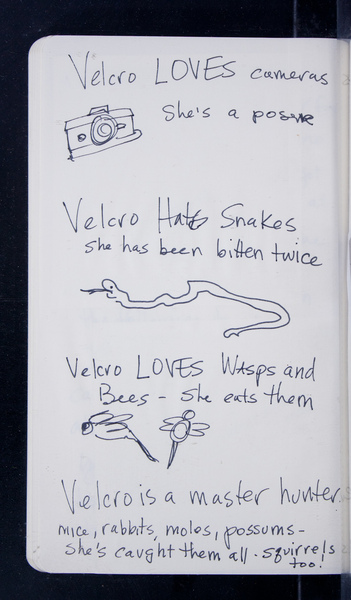 Velcro LOVES cameras
She's a poser
Velcro Hates Snakes
She has been bitten twice
Velcro LOVES Wasps and
Bees - She eats them
Velcro is a master hunter
mice, rabbits, moles, possums -
She's caught them all. squirrels
too!